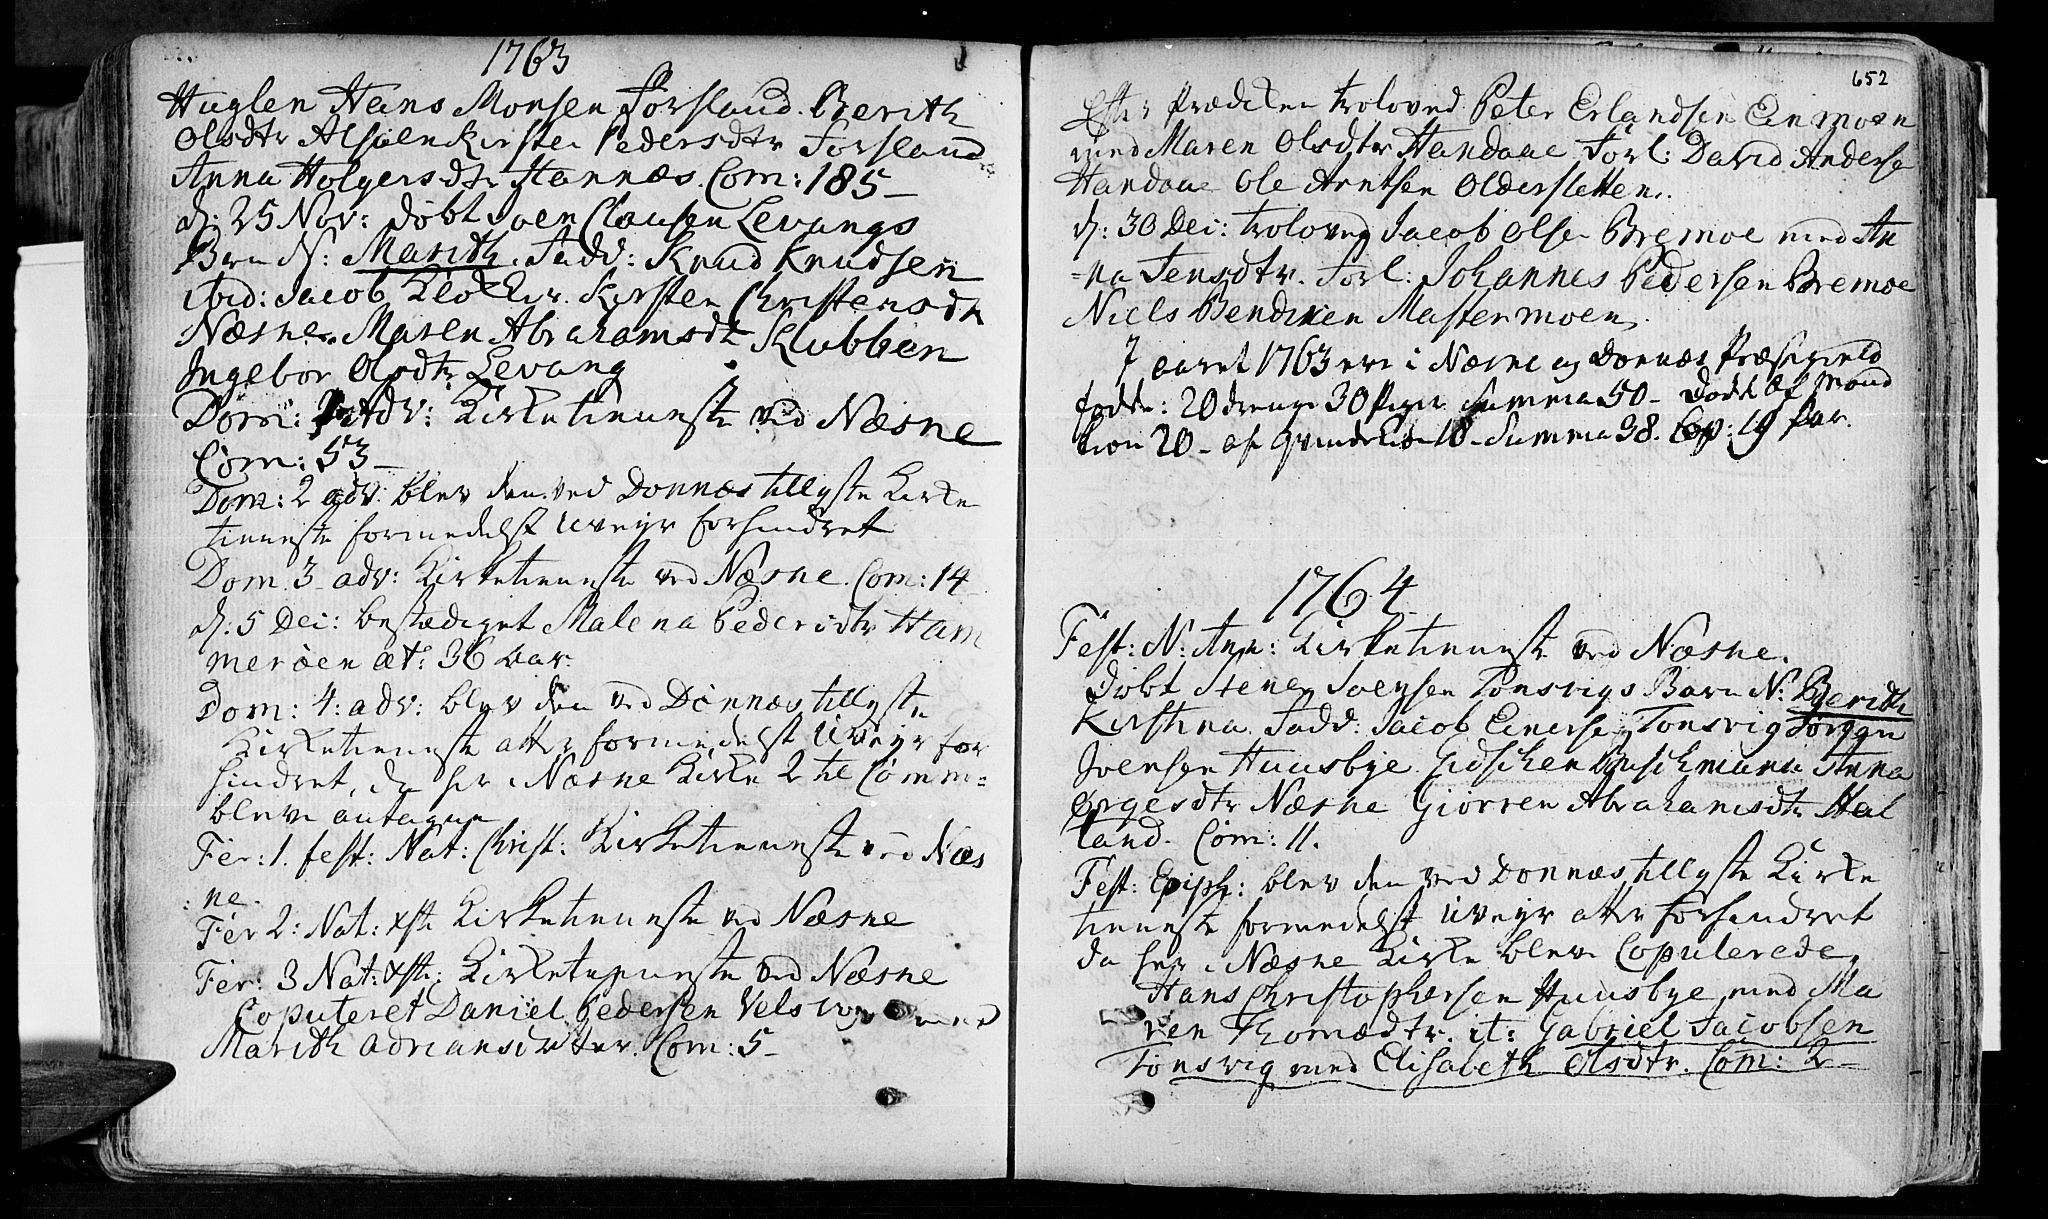 1763
Huglen Hans Monsen Forsland. Berith
Olsdtr Alsøen Kirsten Pedersdtr Forsland
Anna Holgersdtr Hannæs. Com: 185 –
d: 25 Nov: døbt Joen Clausen Levangs
Barn N: Marith. Fadd: Knud Knudsen
ibid: Jacob Klokker. Kirsten Christensdtr
Næsne. Maren Abrahamsdtr Klubben
Ingebor Olsdtr Levang
Dom: 1 Adv: Kirketieneste ved Næsne
Com: 53 –
Dom: 2 adv: blev den ved Dønnæs tillyste Kirke
tieneste formedelst Uveyr forhindret
Dom. 3 adv: Kirketieneste ved Næsne. Com: 14
d: 5 Dec: bestædiget Malena Pedersdtr Ham
merøen æt: 36 aar.
Dom: 4: adv: blev den ved Dønnæs tillyste
Kirketieneste atter formedelst Uveyr for
hindret, da her i Næsne Kirke 2 til Comm=
bleve antagne
Fer: 1. fest: Nat: Christ: Kirketieneste ved Næs
:ne.
Fer 2: Nat: Xsti Kirketieneste ved Næsne
Fer: 3 Nat: Xsti: Kirketieneste ved Næsne
Copuleret Daniel Pedersen med
Marith Adriansdatter. Com: 5 –
652
Efter Prædiken troloved Peter Erlandsen Einmoen
med Maren Olsdtr Handaae Forl: David Anderse
Handaae Ole Arntsen Oldersletten.
d: 30 Dec: troloved Jacob Olsen Bremoe med An
=na Jensdtr. Forl: Johannes Pedersen Bremoe
Niels Bendixen Mastermoen.
I aaret 1763 ere i Næsne og Dønnæs Præstegield
fødde: 20 drenge 30 Piger Summa 50 – Døde af Mand
kion 20 – af qvindekion 18 – Summa 38. Cop: 19 Par.
1764
Fest: N: Ann: Kirketieneste ved Næsne.
Døbt Stenen Joensen Tonsvigs Barn N: Berith
Kirstina Fadd: Jacob Einersen Tonsvig Jørgen
Joensen Huusbye. Anna
Ørgesdtr Næsne Giørren Abrahamsdtr Hal
land. Com: 11.
Fest: Epiph: blev den ved Dønnæs tillyste Kirke
tieneste formedelst Uveyr atter forhindret
da her i Næsne Kirke blev Copulerede
Hans Christophersen Huusbye med Ma
ren Thomædtr. it: Gabriel Jacobsen
Tonsvig med Elisabeth Olsdtr. Com: 2 –